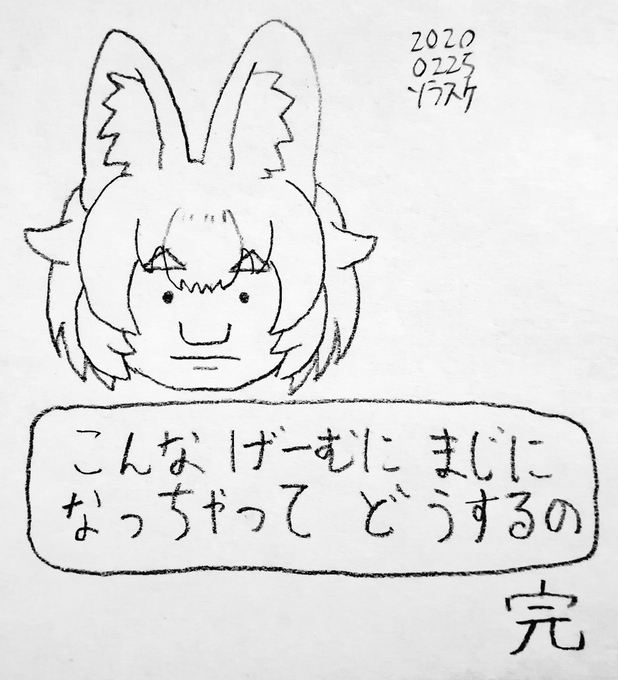 2020
0225
ソラスケ
こんな げーむに まじに
なっちゃって どうするの
完